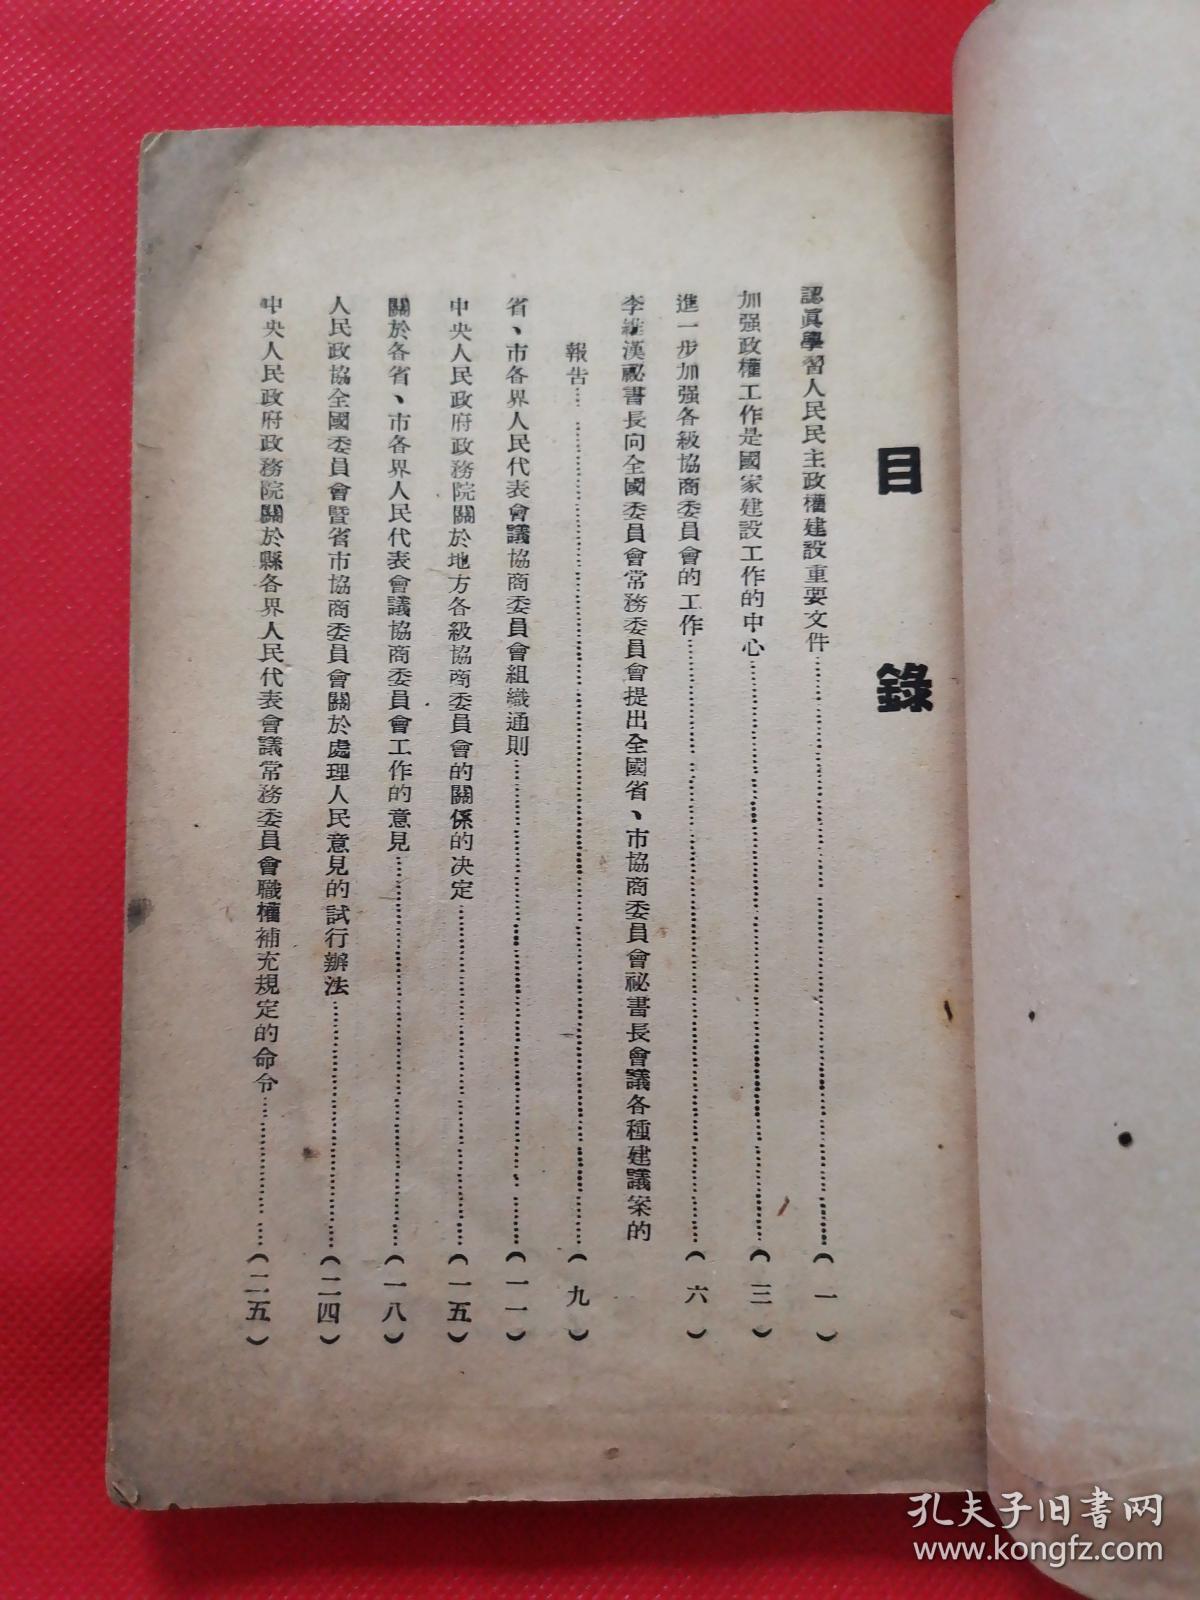 目錄
認眞學習人民民主政權建設重要文件……(一)
加强政權工作是國家建設工作的中心……(三)
進一步加强各級協商委員會的工作……(六)
李維漢祕書長向全國委員會常務委員會提出全國省、市協商委員會祕書長會議各種建議案的
報告……(九)
省、市各界人民代表會議協商委員會組織通則……(一一)
中央人民政府政務院關於地方各級協商委員會的關係的决定……(一五)
關於各省、市各界人民代表會議協商委員會工作的意見……(一八)
人民政協全國委員會暨省市協商委員會關於處理人民意見的試行辦法……(二四)
中央人民政府政務院關於縣各界人民代表會議常務委員會職權補充規定的命令……(二五)
孔夫子旧书网
www.kongfz.com